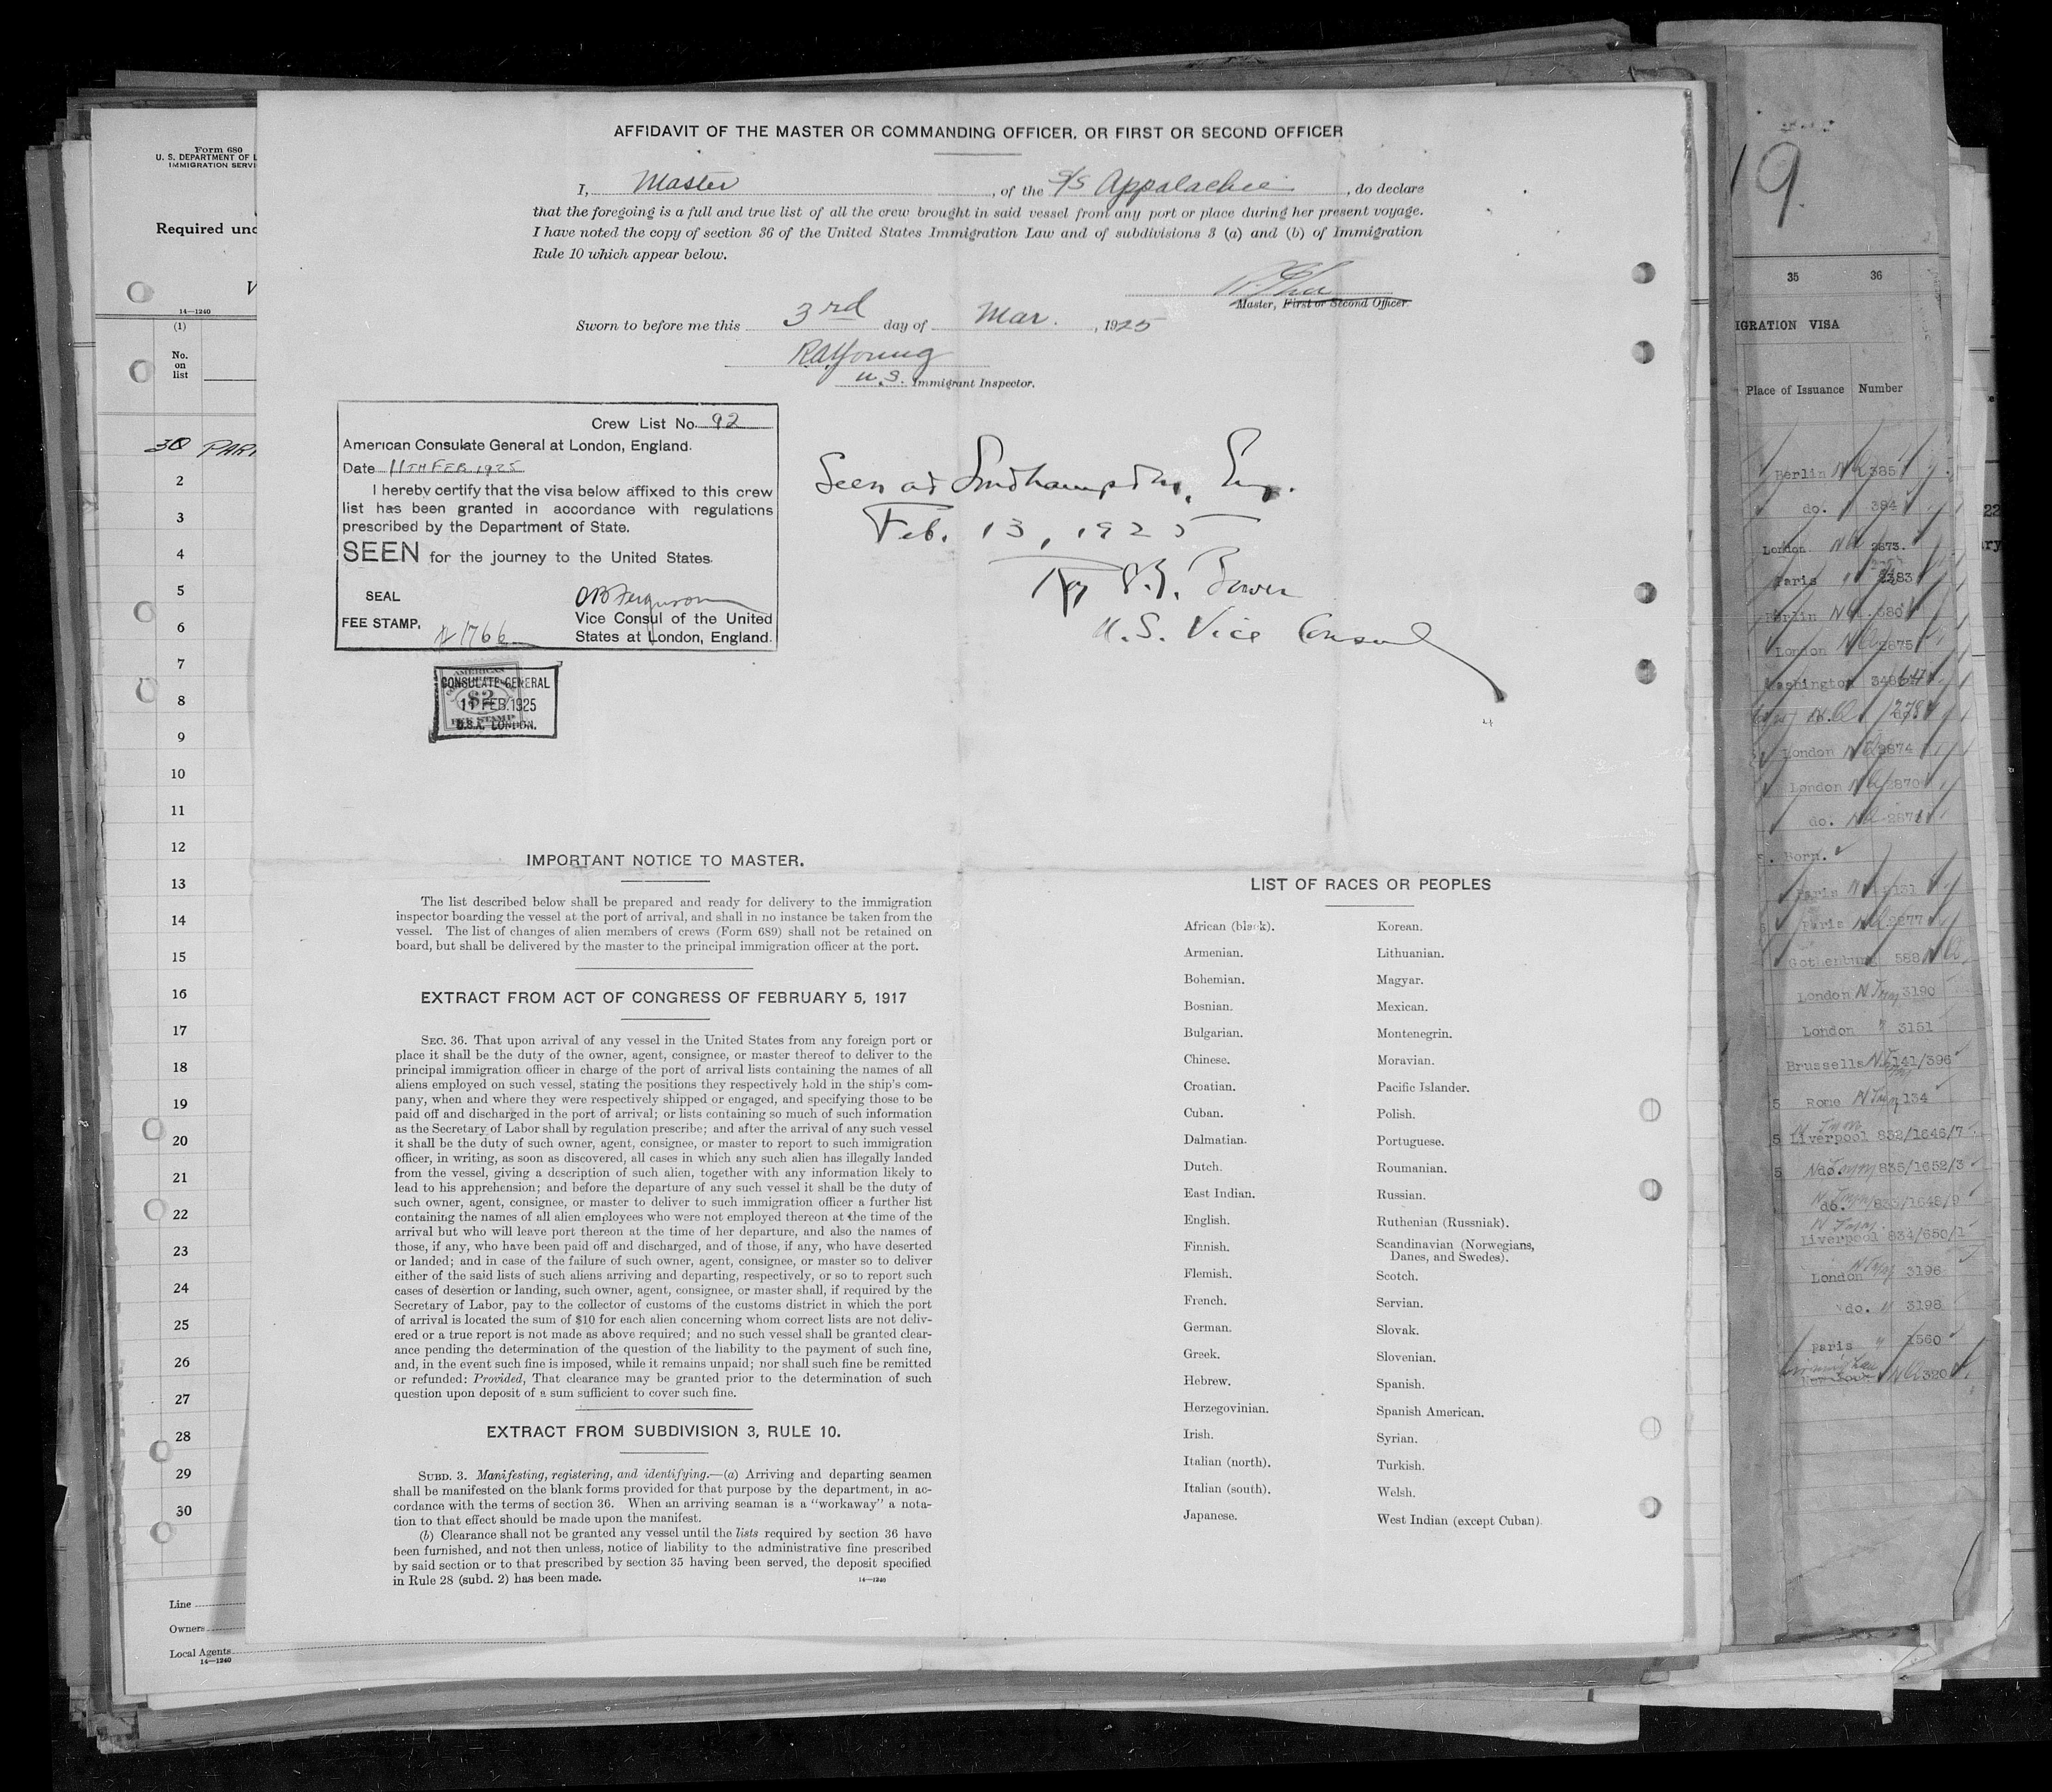 AFFIDAVIT OF THE MASTER OR COMMANDING OFFICER, OR FIRST OR SECOND OFFICER
I, Master, of the S/S Appalachee, do declare
that the foregoing is a full and true list of all the crew brought in said vessel from any port or place during her present voyage.
I have noted the copy of section 36 of the United States Immigration Law and of subdivisions 3 (a) and (b) of Immigration
Rule 10 which appear below.
Master, First or Second Officer.
Sworn to before me this 3rd day of Mar., 1925
R.A. Young
U.S. Immigrant Inspector.
Crew List No. 92
American Consulate General at London, England.
Date 11TH FEB. 1925
I hereby certify that the visa below affixed to this crew
list has been granted in accordance with regulations
prescribed by the Department of State.
SEEN for the journey to the United States.
SEAL
FEE STAMP. 1766
Vice Consul of the United
States at London, England.
AMERICAN
CONSULATE GENERAL
$2
11 FEB. 1925
FEE STAMP
U.S.A. LONDON.
Seen at Southampton, Eng.
Feb. 13, 1925
U.S. Vice Consul
4
IMPORTANT NOTICE TO MASTER.
The list described below shall be prepared and ready for delivery to the immigration
inspector boarding the vessel at the port of arrival, and shall in no instance be taken from the
vessel. The list of changes of alien members of crews (Form 689) shall not be retained on
board, but shall be delivered by the master to the principal immigration officer at the port.
EXTRACT FROM ACT OF CONGRESS OF FEBRUARY 5, 1917
SEC. 36. That upon arrival of any vessel in the United States from any foreign port or
place it shall be the duty of the owner, agent, consignee, or master thereof to deliver to the
principal immigration officer in charge of the port of arrival lists containing the names of all
aliens employed on such vessel, stating the positions they respectively hold in the ship's com-
pany, when and where they were respectively shipped or engaged, and specifying those to be
paid off and discharged in the port of arrival; or lists containing so much of such information
as the Secretary of Labor shall by regulation prescribe; and after the arrival of any such vessel
it shall be the duty of such owner, agent, consignee, or master to report to such immigration
officer, in writing, as soon as discovered, all cases in which any such alien has illegally landed
from the vessel, giving a description of such alien, together with any information likely to
lead to his apprehension; and before the departure of any such vessel it shall be the duty of
such owner, agent, consignee, or master to deliver to such immigration officer a further list
containing the names of all alien employees who were not employed thereon at the time of the
arrival but who will leave port thereon at the time of her departure, and also the names of
those, if any, who have been paid off and discharged, and of those, if any, who have deserted
or landed; and in case of the failure of such owner, agent, consignee, or master so to deliver
either of the said lists of such aliens arriving and departing, respectively, or so to report such
cases of desertion or landing, such owner, agent, consignee, or master shall, if required by the
Secretary of Labor, pay to the collector of customs of the customs district in which the port
of arrival is located the sum of $10 for each alien concerning whom correct lists are not deliv-
ered or a true report is not made as above required; and no such vessel shall be granted clear-
ance pending the determination of the question of the liability to the payment of such fine,
and, in the event such fine is imposed, while it remains unpaid; nor shall such fine be remitted
or refunded: Provided, That clearance may be granted prior to the determination of such
question upon deposit of a sum sufficient to cover such fine.
EXTRACT FROM SUBDIVISION 3, RULE 10.
SUBD. 3. Manifesting, registering, and identifying.—(a) Arriving and departing seamen
shall be manifested on the blank forms provided for that purpose by the department, in ac-
cordance with the terms of section 36. When an arriving seaman is a "workaway" a nota-
tion to that effect should be made upon the manifest.
(b) Clearance shall not be granted any vessel until the lists required by section 36 have
been furnished, and not then unless, notice of liability to the administrative fine prescribed
by said section or to that prescribed by section 35 having been served, the deposit specified
in Rule 28 (subd. 2) has been made.
14—1240
LIST OF RACES OR PEOPLES
African (black).
Armenian.
Bohemian.
Bosnian.
Bulgarian.
Chinese.
Croatian.
Cuban.
Dalmatian.
Dutch.
East Indian.
English.
Finnish.
Flemish.
French.
German.
Greek.
Hebrew.
Herzegovinian.
Irish.
Italian (north).
Italian (south).
Japanese.
Korean.
Lithuanian.
Magyar.
Mexican.
Montenegrin.
Moravian.
Pacific Islander.
Polish.
Portuguese.
Roumanian.
Russian.
Ruthenian (Russniak).
Scandinavian (Norwegians,
Danes, and Swedes).
Scotch.
Servian.
Slovak.
Slovenian.
Spanish.
Spanish American.
Syrian.
Turkish.
Welsh.
West Indian (except Cuban).
Form 680
U. S. DEPARTMENT OF L
IMMIGRATION SERVI
Required und
V
14—1240
(1)
No.
on
list
PAR
2
3
4
5
6
7
8
9
10
11
12
13
14
15
16
17
18
19
20
21
22
23
24
25
26
27
28
29
30
Line
Owners
Local Agents
14—1240
19.
35 36
IGRATION VISA
Place of Issuance Number
Berlin 385
do. 384
London 2873.
Paris
Berlin
London 2875
Washington
London 2874
London 2870
do.
Born.
Paris
Paris 2877
Gothenburg 588
London 3190
London 3151
Brussells 141/396
Rome 134
Liverpool 832/1646/7
do. 835/1652/3
do. 833/1648/9
Liverpool 834/650/1
London 3196
do. 3198
Paris 1560
320